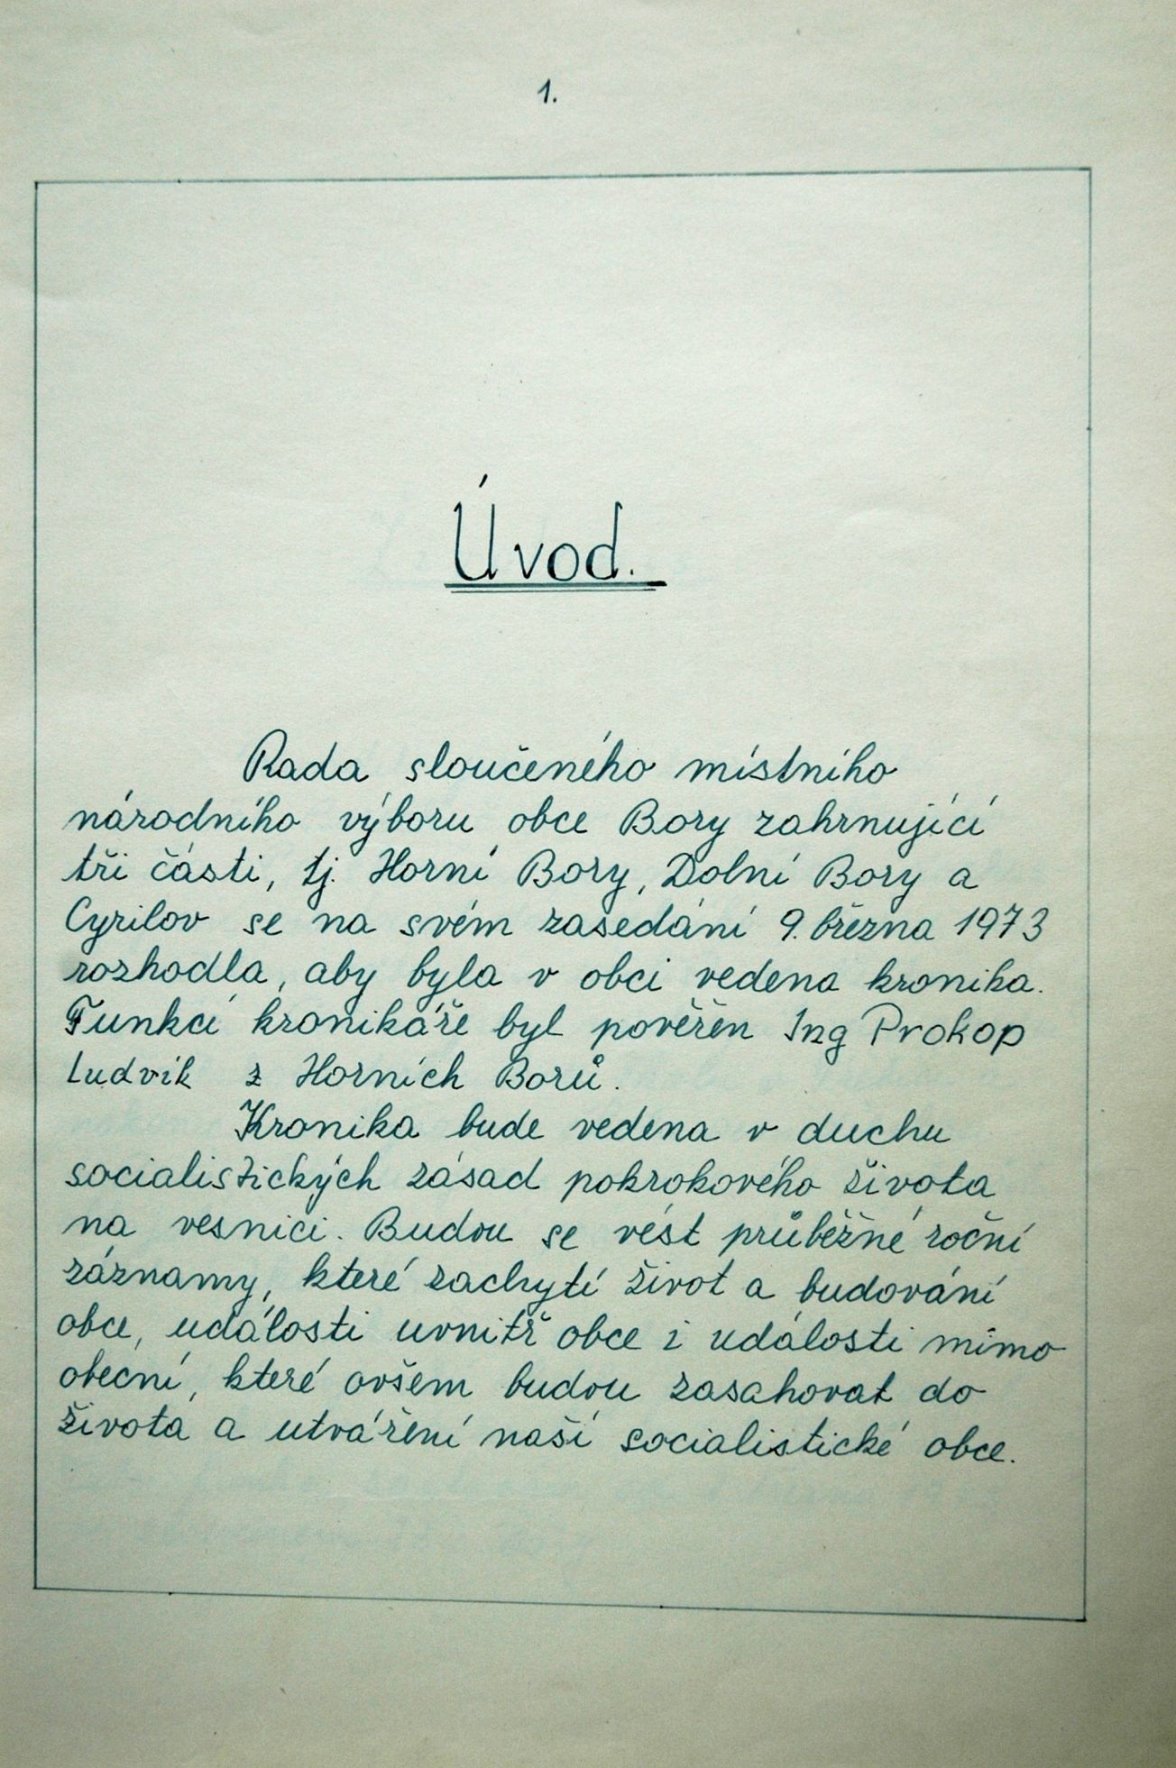 1.
Úvod.
Rada sloučeného místního
národního výboru obce Bory zahrnující
tři části, tj. Horní Bory, Dolní Bory a
Cyrilov se na svém zasedání 9. března 1973
rozhodla, aby byla v obci vedena kronika.
Funkcí kronikáře byl pověřen Ing Prokop
Ludvík z Horních Borů.
Kronika bude vedena v duchu
socialistických zásad pokrokového života
na vesnici. Budou se vést průběžné roční
záznamy, které zachytí život a budování
obce, události uvnitř obce i události mimo
obecní, které ovšem budou zasahovat do
života a utváření naší socialistické obce.